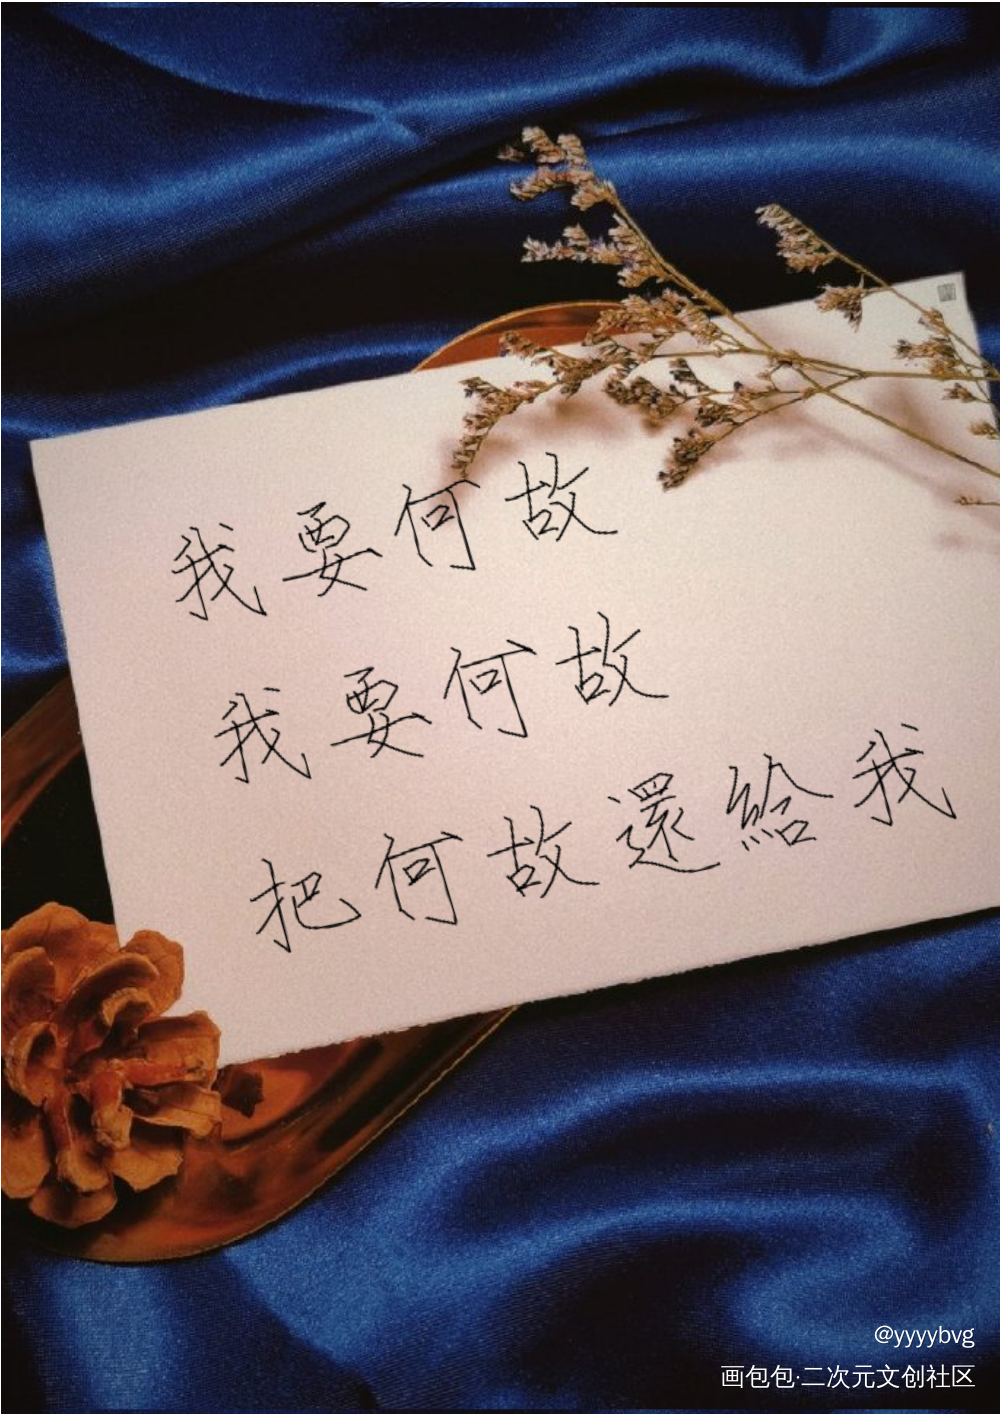 我要何故
我要何故
把何故還給我
@yyyybvg
画包包·二次元文创社区